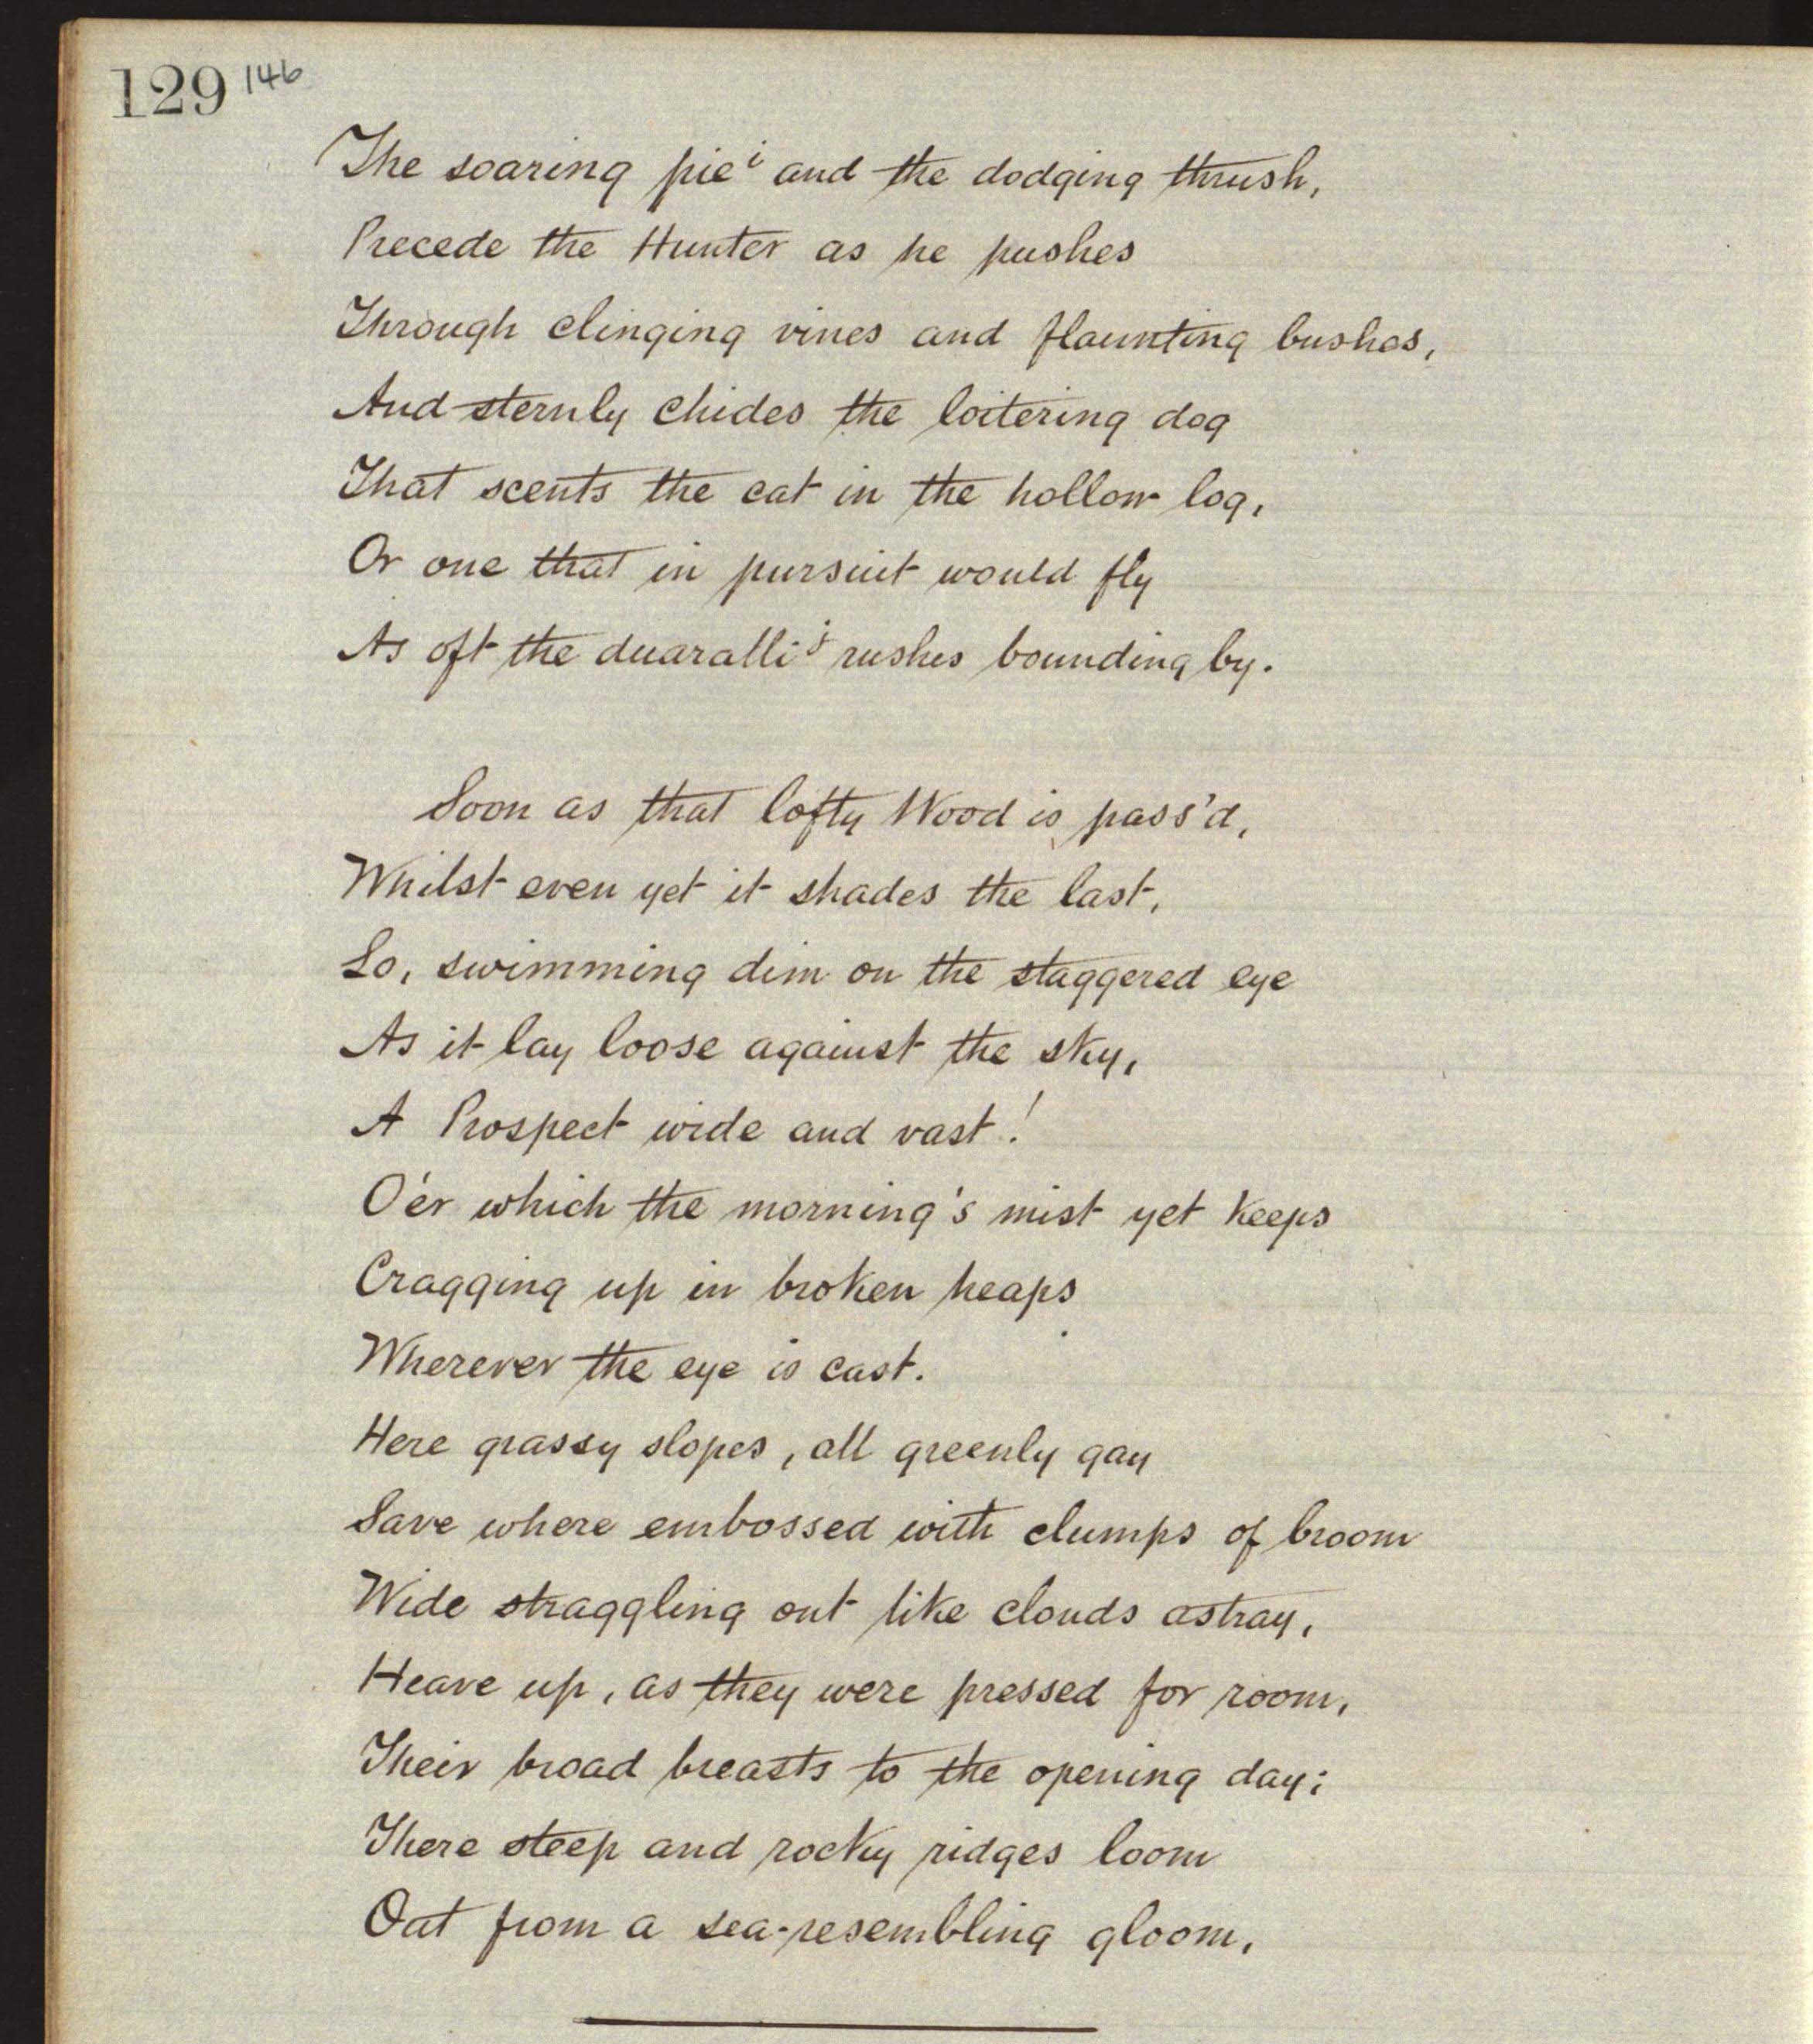 129 146
The soaring pie i and the dodging thrush,
Precede the Hunter as he pushes
Through clinging vines and flaunting bushes,
And sternly chides the loitering dog
That scents the cat in the hollow log,
Or one that in pursuit would fly
As oft the duaralli j rushes bounding by.
Soon as that lofty Wood is pass'd,
Whilst even yet it shades the last,
Lo, swimming dim on the staggered eye
As it lay loose against the sky,
A Prospect wide and vast!
O'er which the morning's mist yet keeps
Cragging up in broken heaps
Wherever the eye is cast.
Here grassy slopes, all greenly gay
Save where embossed with clumps of broom
Wide straggling out like clouds astray,
Heave up, as they were pressed for room,
Their broad breasts to the opening day;
There steep and rocky ridges loom
Out from a sea-resembling gloom,